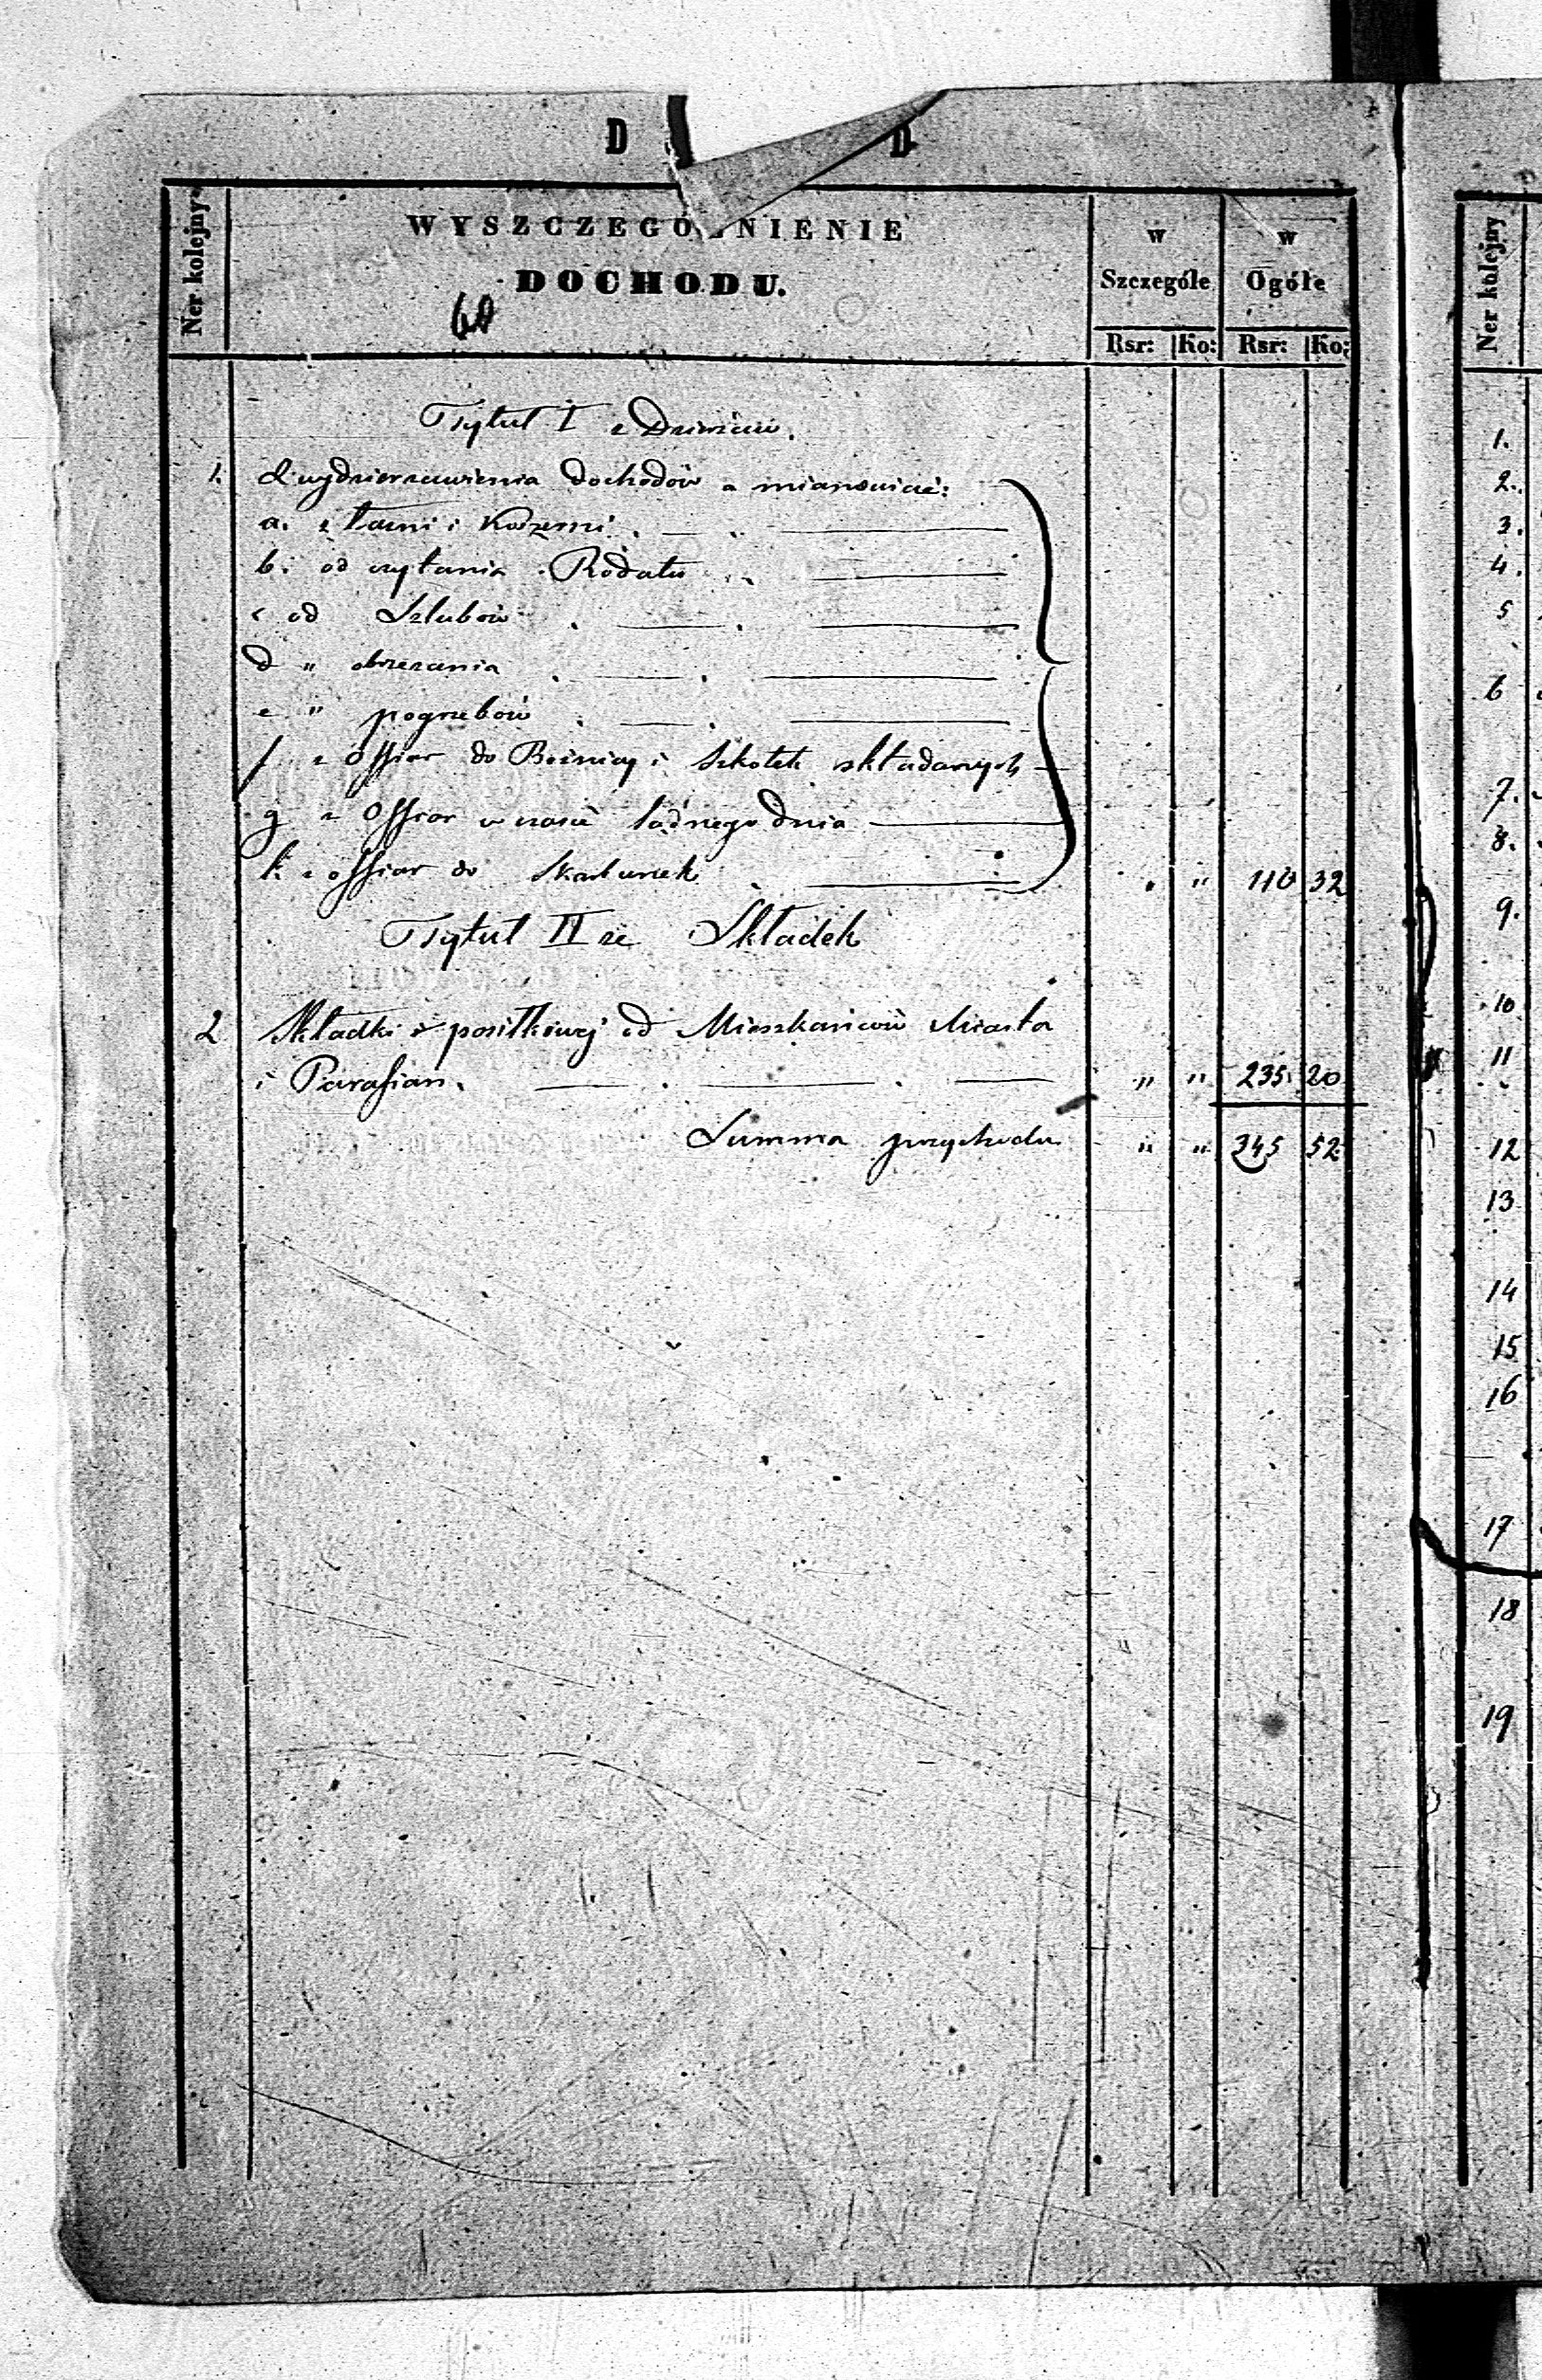 D D
Ner kolejny
WYSZCZEGÓLNIENIE
DOCHODU.
w Szczególe
w Ogóle
Rsr: Ko: Rsr: Ko:
Ner kolejny
Tytuł I z
1. Z wydzierzawienia dochodów a mianowicie:
a. z Łazni i
b. od czytania Rodału
c od Szlubów
d " obrzezania
e " pogrzebów
f z Offiar do Boznicy i Szkołek składanych
g z Offiar w czasie Sądnego Dnia
h. z offiar do Skarbonek " " 110 32
Tytuł II ze Składek
2 Składki posiłkowej od Mieszkańców Miasta
i Parafian. " " 235 20
Summa przychodu " " 345 52
1.
2.
3.
4.
5
6
7.
8.
9.
10
11
12
13
14
15
16
17
18
19